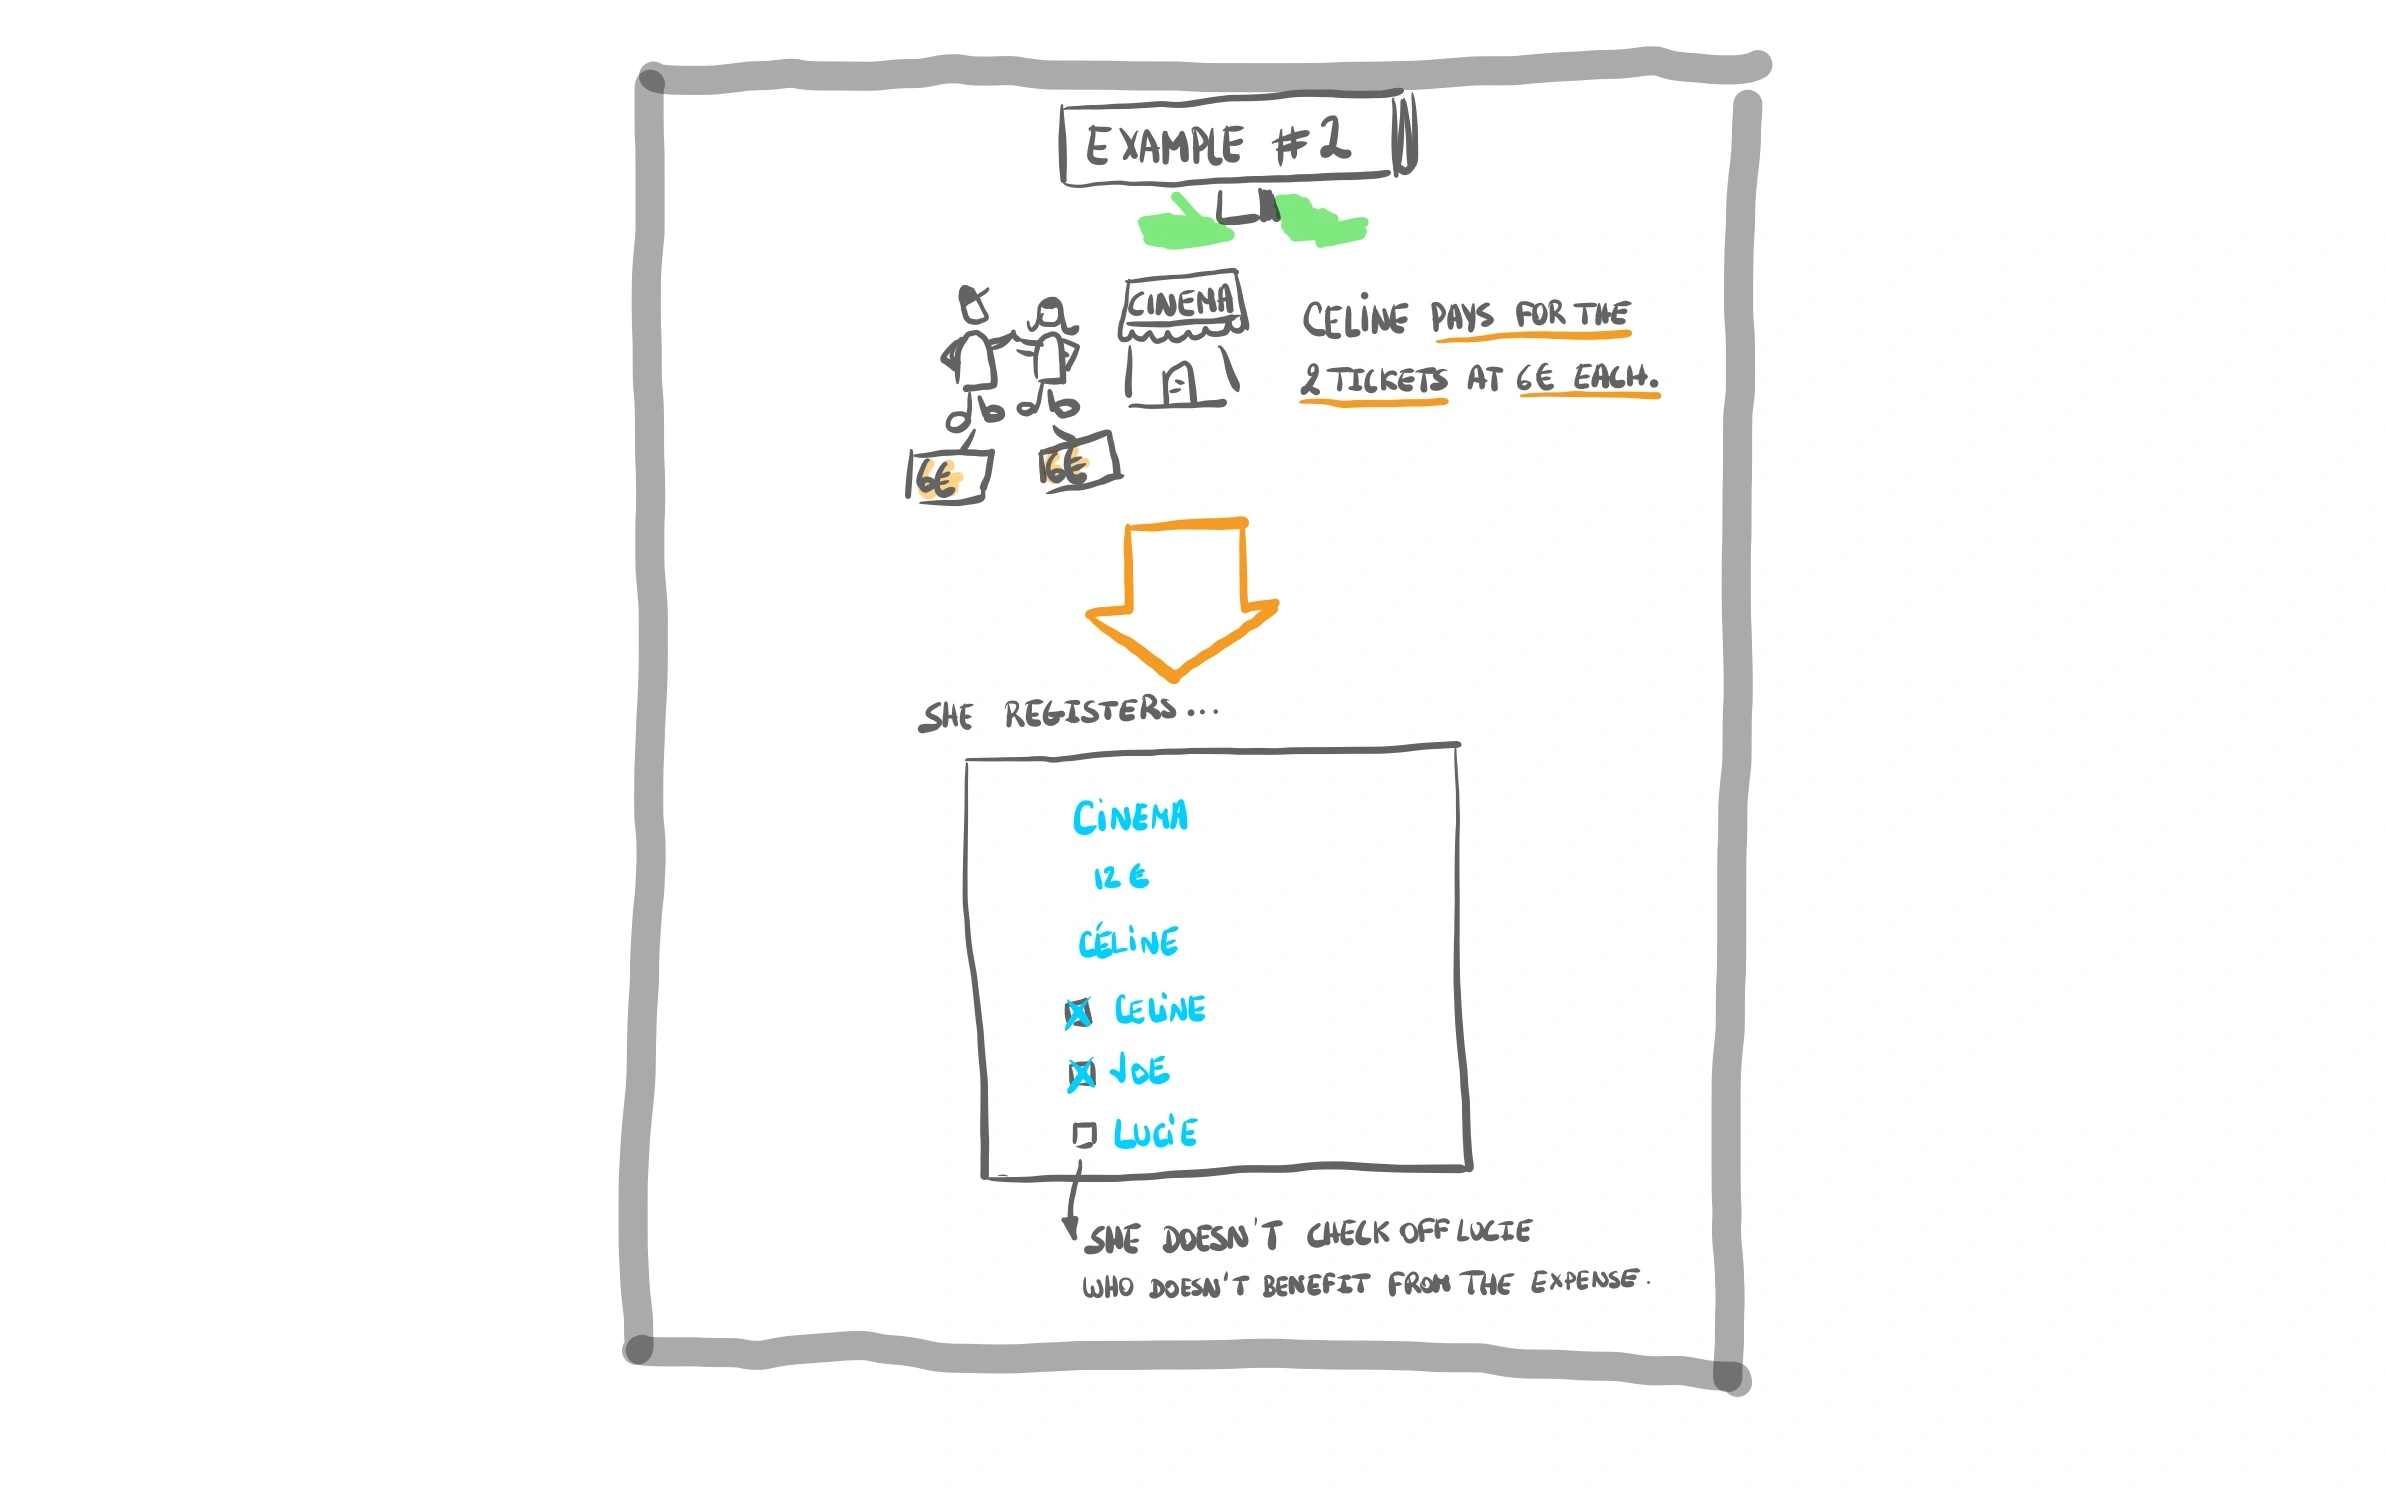 EXAMPLE #2
CINEMA
CELINE PAYS FOR THE
2 TICKETS AT 6€ EACH.
6€
6€
SHE REGISTERS...
CINEMA
12 €
CÉLINE
CELINE
JOE
LUCIE
SHE DOESN'T CHECK OFF LUCIE
WHO DOESN'T BENEFIT FROM THE EXPENSE.